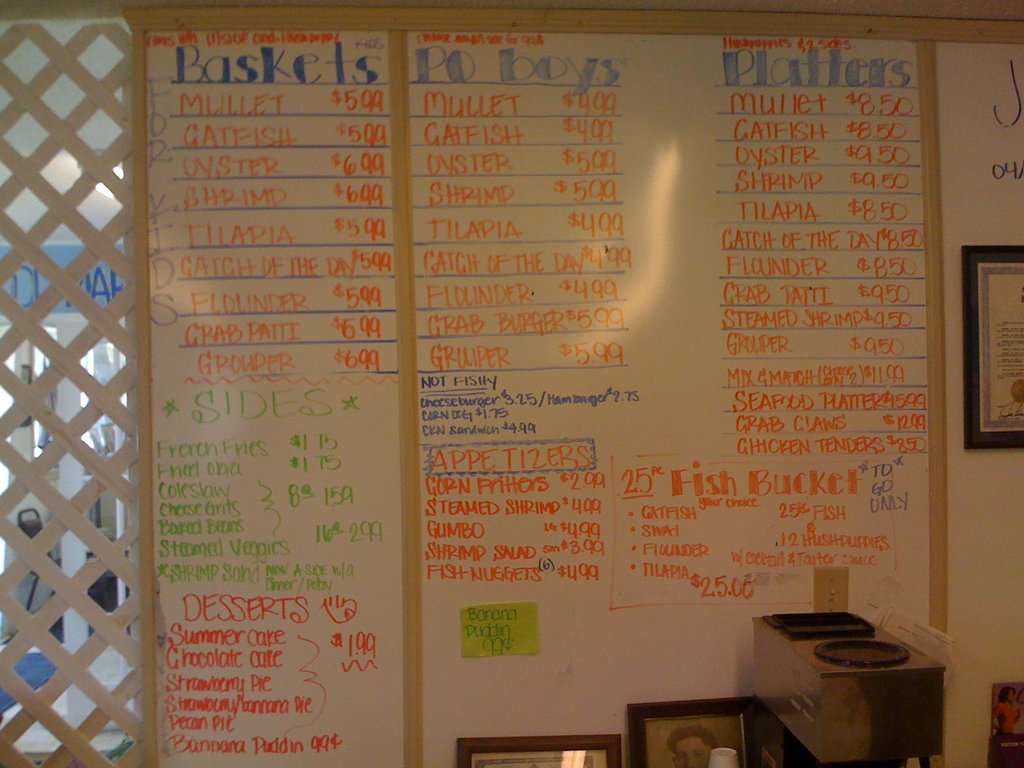 Baskets
FOR KIDS
MULLET $5.99
CATFISH $5.99
OYSTER $6.99
SHRIMP $6.99
TILAPIA $5.99
CATCH OF THE DAY $5.99
FLOUNDER $5.99
CRAB PATTI $6.99
GROUPER $6.99
* SIDES *
French Fries $1.75
Fried okra $1.75
Coleslaw
Cheese Grits
Baked Beans
Steamed Veggies
8oz 1.59
16oz 2.99
*SHRIMP Salad NOW A SIDE w/a
Dinner/Poboy
DESSERTS
Summer Cake
Chocolate Cake
Strawberry Pie
Strawberry/Bannana Pie
Pecan Pie
$1.99
Bannana Puddin 99¢
PO boys
MULLET $4.99
CATFISH $4.99
OYSTER $5.99
SHRIMP $5.99
TILAPIA $4.99
CATCH OF THE DAY $4.99
FLOUNDER $4.99
CRAB BURGER $5.99
GROUPER $5.99
NOT FISHY
Cheeseburger $3.25/Hamburger $2.75
CORN DOG $1.75
CKN Sandwich $4.99
APPETIZERS
CORN Fritters $2.99
STEAMED SHRIMP $4.99
GUMBO LG $4.99
SHRIMP SALAD sm $3.99
FISH NUGGETS (6) $4.99
Banana
Puddin
99¢
Hushpuppies & 2 sides
Platters
Mullet $8.50
CATFISH $8.50
OYSTER $9.50
SHRIMP $9.50
TILAPIA $8.50
CATCH OF THE DAY $8.50
FLOUNDER $8.50
CRAB PATTI $9.50
STEAMED SHRIMP $9.50
GROUPER $9.50
MIX & MATCH (CHOOSE ANY 2) $11.99
SEAFOOD PLATTER $15.99
CRAB CLAWS $12.99
CHICKEN TENDERS $8.50
25pc Fish Bucket
*TO GO ONLY*
your choice
• CATFISH
• SWAI
• FLOUNDER
• TILAPIA
25pc FISH
&
12 HUSHPUPPIES
w/cocktail & Tartar sauce
$25.00
J
04/